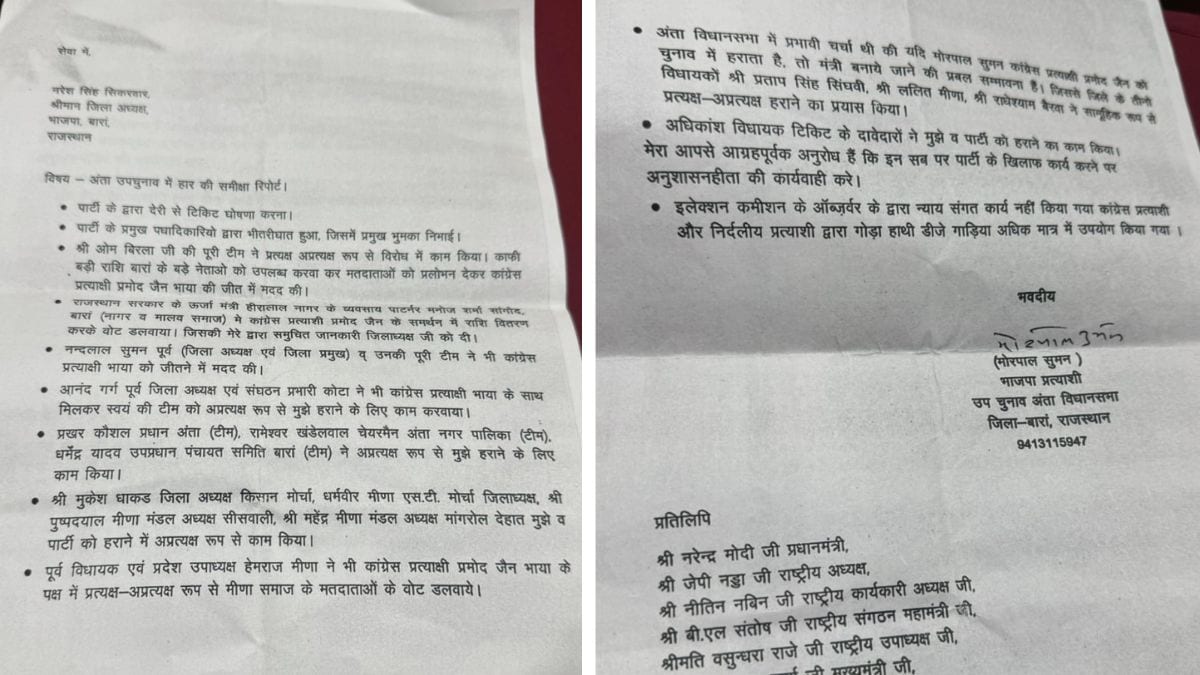 सेवा में,
नरेश सिंह सिकरवार,
श्रीमान जिला अध्यक्ष,
भाजपा, बारां,
राजस्थान
विषय – अंता उपचुनाव में हार की समीक्षा रिपोर्ट।
• पार्टी के द्वारा देरी से टिकिट घोषणा करना।
• पार्टी के प्रमुख पधादिकारियो द्वारा भीतरीघात हुआ, जिसमें प्रमुख भुमका निमाई।
• श्री ओम बिरला जी की पूरी टीम ने प्रत्यक्ष अप्रत्यक्ष रूप से विरोध में काम किया। काफी
बड़ी राशि बारां के बड़े नेताओ को उपलब्ध करवा कर मतदाताओं को प्रलोभन देकर कांग्रेस
प्रत्याक्षी प्रमोद जैन भाया की जीत में मदद की।
• राजस्थान सरकार के ऊर्जा मंत्री हीरालाल नागर के व्यवसाय पार्टनर मनोज शर्मा सांगोद,
बारां (नागर व मालव समाज) मे कांग्रेस प्रत्याशी प्रमोद जैन के समर्थन में राशि वितरण
करके वोट डलवाया। जिसकी मेरे द्वारा समुचित जानकारी जिलाध्यक्ष जी को दी।
• नन्दलाल सुमन पूर्व (जिला अध्यक्ष एवं जिला प्रमुख) व् उनकी पूरी टीम ने भी कांग्रेस
प्रत्याक्षी भाया को जीतने में मदद की।
• आनंद गर्ग पूर्व जिला अध्यक्ष एवं संघठन प्रभारी कोटा ने भी कांग्रेस प्रत्याक्षी भाया के साथ
मिलकर स्वयं की टीम को अप्रत्यक्ष रूप से मुझे हराने के लिए काम करवाया।
• प्रखर कौशल प्रधान अंता (टीम), रामेश्वर खंडेलवाल चेयरमैन अंता नगर पालिका (टीम),
धर्मेंद्र यादव उपप्रधान पंचायत समिति बारां (टीम) ने अप्रत्यक्ष रूप से मुझे हराने के लिए
काम किया।
• श्री मुकेश धाकड जिला अध्यक्ष किसान मोर्चा, धर्मवीर मीणा एस.टी. मोर्चा जिलाध्यक्ष, श्री
पुष्पदयाल मीणा मंडल अध्यक्ष सीसवाली, श्री महेंद्र मीणा मंडल अध्यक्ष मांगरोल देहात मुझे व
पार्टी को हराने में अप्रत्यक्ष रूप से काम किया।
• पूर्व विधायक एवं प्रदेश उपाध्यक्ष हेमराज मीणा ने भी कांग्रेस प्रत्याक्षी प्रमोद जैन भाया के
पक्ष में प्रत्यक्ष–अप्रत्यक्ष रूप से मीणा समाज के मतदाताओं के वोट डलवाये।
• अंता विधानसभा में प्रभावी चर्चा थी की यदि मोरपाल सुमन कांग्रेस प्रत्याशी प्रमोद जैन को
चुनाव में हराता है, तो मंत्री बनाये जाने की प्रबल सम्मावना है। जिससे जिले के तीनो
विधायकों श्री प्रताप सिंह सिंघवी, श्री ललित मीणा, श्री राधेश्याम बैरवा ने सामूहिक रूप से
प्रत्यक्ष–अप्रत्यक्ष हराने का प्रयास किया।
• अधिकांश विधायक टिकिट के दावेदारों ने मुझे व पार्टी को हराने का काम किया।
मेरा आपसे आग्रहपूर्वक अनुरोध हैं कि इन सब पर पार्टी के खिलाफ कार्य करने पर
अनुशासनहीता की कार्यवाही करे।
• इलेक्शन कमीशन के ऑब्ज़र्वर के द्वारा न्याय संगत कार्य नहीं किया गया कांग्रेस प्रत्याशी
और निर्दलीय प्रत्याशी द्वारा गोड़ा हाथी डीजे गाड़िया अधिक मात्र में उपयोग किया गया ।
भवदीय
मोरपाल सुमन
(मोरपाल सुमन )
भाजपा प्रत्याशी
उप चुनाव अंता विधानसभा
जिला–बारां, राजस्थान
9413115947
प्रतिलिपि
श्री नरेन्द्र मोदी जी प्रधानमंत्री,
श्री जेपी नड्डा जी राष्ट्रीय अध्यक्ष,
श्री नीतिन नबिन जी राष्ट्रीय कार्यकारी अध्यक्ष जी,
श्री बी.एल संतोष जी राष्ट्रीय संगठन महामंत्री जी,
श्रीमति वसुन्धरा राजे जी राष्ट्रीय उपाध्यक्ष जी,
जी मुख्यमंत्री जी,